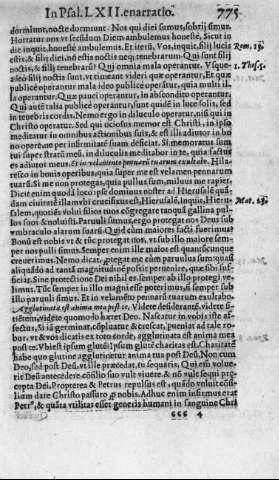 In Psal. LXII. enarratio. 775
dormiunt, nocte dormiunt. Nos qui diei sumus, sobrij simus.
Hortatus nos est vt secundum Diem ambulemus honestè, Sicut in
die inquit, honestè ambulemus. Et iterū, Vos, inquit, filij lucis Rom. 13.
estis, & filij diei, nō estis noctis neq; tenebrarum. Qui sunt filij 1. Thes. 5.
noctis, & filij tenebrarū? Qui omnia mala operantur. Vsque-
adeo filij noctis sunt, vt timeant videri quæ operantur. Et quæ
publicè operantur mala ideo publicè operātur, quia multi il-
la operantur. Quæ pauci operantur, in abscōdito operantur.
Qui autē talia publicè operantur, sunt quidē in luce solis, sed
in tenebris cordis. Nemo ergo in diluculo operatur, nisi qui in
Christo operatur. Sed qui ociosus memor est Christi, in ipso
meditatur in omnibus actionibus suis, & est illi adiutor in bo
no opere, ne per infirmitatē suam deficiat. Si memoratus sum
tui super stratū meū, in diluculis meditabor in te, quia factus
es adiutor meus. Et in velamento pennarū tuarum exultabo. Hila-
resco in bonis operibus, quia super me est velamen pennarum
tuarū. Si me non protegas, quia pullus sum, miluus me rapiet.
Dicit enim quodā loco ipse dominus noster ad Hierusalē quan
dam ciuitatē illā vbi crucifixus est, Hierusalē, inquit, Hieru- Mat. 23.
salem, quoties volui filios tuos cōgregare tanquā gallina pul-
los suos & noluisti. Paruuli sumus, ergo protegat nos Deus sub
vmbraculo alarum suarū. Quid cùm maiores facti fuerimus?
Bonū est nobis vt & tūc protegat nos, vt sub illo maiore sem-
per nos pulli simus. Semper enim ille maior est quantuncunque
creuerimus. Nemo dicat, protegat me cùm paruulus sum: quasi
aliquādo ad tantā magnitudinē possit peruenire, quæ sibi suf-
ficiat. Sine protectione Dei nihil es, semper ab illo protegi ve-
limus. Tūc semper in illo magni esse poterimus, si semper sub
illo paruuli simus. Et in velamēto pennarū tuarum exultabo.
Agglutinata est anima mea post te. Videte desiderantē, videte si-
tientem, videte quomodo hæret Deo. Nascatur in vobis iste af-
fectus. Si iā germinat, cōpluatur & crescat, perueniat ad tale ro-
bur, vt & vos dicatis ex toto corde, agglutinata est anima mea
post te. Vbi est ipsum gluten? Ipsum glutē charitas est. Charitatē
habe quo glutine agglutinetur anima tua post Deū. Non cum
Deo, sed post Deū, vt ille præcedat, tu sequaris. Qui em̄ volue-
rit Deū antecedere cōsilio suo vult viuere, & nō vult sequi præ-
cepta Dei. Propterea & Petrus repulsus est, quādo voluit cōsi-
lium dare Christo passuro ꝓ nobis. Adhuc enim infirmus erat
Petr⁹, & quāta vtilitas esset generis humani in sanguine Chri
ccc 4